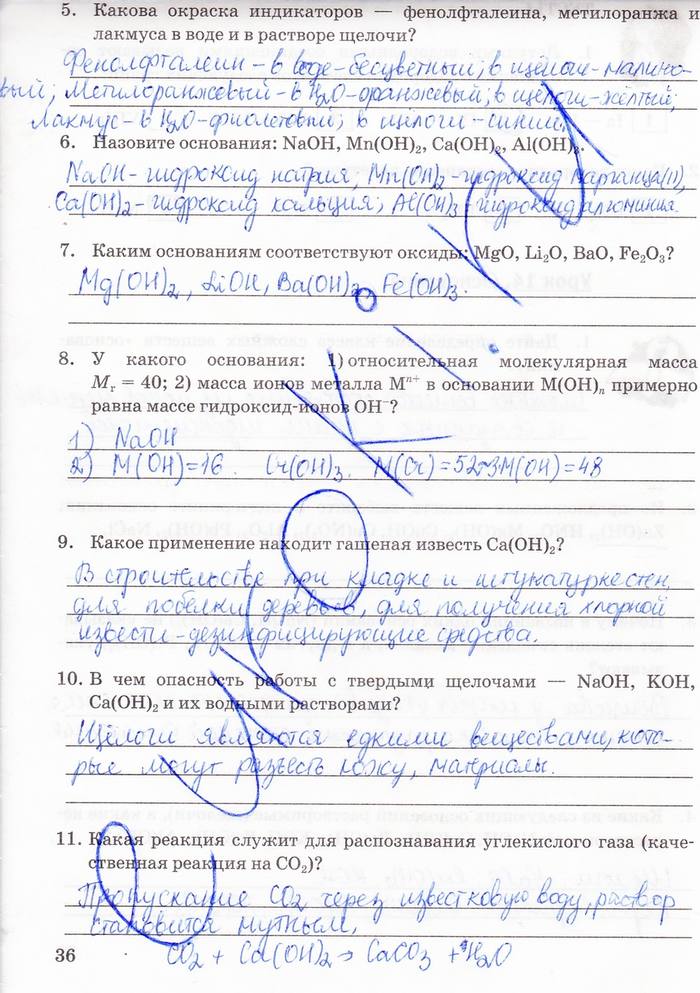 5. Какова окраска индикаторов — фенолфталеина, метилоранжа и
лакмуса в воде и в растворе щелочи?
Фенолфталеин - в воде - бесцветный; в щёлочи - малино-
вый; Метилоранжевый - в H₂O - оранжевый; в щёлочи - жёлтый;
Лакмус - в H₂O - фиолетовый; в щёлочи - синий.
6. Назовите основания: NaOH, Mn(OH)₂, Ca(OH)₂, Al(OH)₃.
NaOH - гидроксид натрия, Mn(OH)₂ - гидроксид марганца(II),
Ca(OH)₂ - гидроксид кальция; Al(OH)₃ - гидроксид алюминия.
7. Каким основаниям соответствуют оксиды: MgO, Li₂O, BaO, Fe₂O₃?
Mg(OH)₂, LiOH, Ba(OH)₂, Fe(OH)₃.
8. У какого основания: 1) относительная молекулярная масса
Mᵣ = 40; 2) масса ионов металла Mⁿ⁺ в основании M(OH)ₙ примерно
равна массе гидроксид-ионов OH⁻?
1) NaOH
2) M(OH)=16. Cr(OH)₃. M(Cr)=52≈3M(OH)=48
9. Какое применение находит гашеная известь Ca(OH)₂?
В строительстве при кладке и штукатурке стен,
для побелки деревьев, для получения хлорной
извести - дезинфицирующие средства.
10. В чем опасность работы с твердыми щелочами — NaOH, KOH,
Ca(OH)₂ и их водными растворами?
Щёлочи являются едкими веществами, кото-
рые могут разъесть кожу, материалы.
11. Какая реакция служит для распознавания углекислого газа (каче-
ственная реакция на CO₂)?
Пропускание CO₂ через известковую воду, раствор
становится мутным.
36 CO₂ + Ca(OH)₂ → CaCO₃ + H₂O